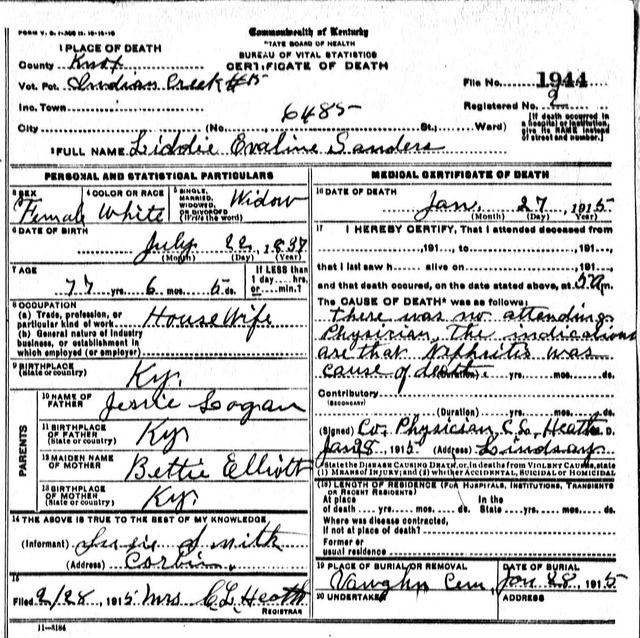 FORM V. S. 1-A
Commonwealth of Kentucky
STATE BOARD OF HEALTH
BUREAU OF VITAL STATISTICS
CERTIFICATE OF DEATH
1 PLACE OF DEATH
County Knox
Vot. Pct. Indian Creek #5
Inc. Town
City (No. 6485 St., Ward)
File No. 1944
Registered No. 2
[If death occurred in a hospital or institution, give its NAME instead of street and number.]
2 FULL NAME Liddie Evaline Sanders
PERSONAL AND STATISTICAL PARTICULARS
3 SEX Female
4 COLOR OR RACE White
5 SINGLE, MARRIED, WIDOWED OR DIVORCED (Write the word) Widow
6 DATE OF BIRTH July 22, 1837
(Month) (Day) (Year)
7 AGE 77 yrs. 6 mos. 5 ds.
If LESS than 1 day.... hrs. or.... min.?
8 OCCUPATION
(a) Trade, profession, or particular kind of work House Wife
(b) General nature of industry business, or establishment in which employed (or employer)
9 BIRTHPLACE (State or country) Ky.
PARENTS
10 NAME OF FATHER Jessie Logan
11 BIRTHPLACE OF FATHER (State or country) Ky.
12 MAIDEN NAME OF MOTHER Bettie Elliott
13 BIRTHPLACE OF MOTHER (State or country) Ky.
14 THE ABOVE IS TRUE TO THE BEST OF MY KNOWLEDGE
(Informant) Smith
(Address) Corbin,
15
Filed 2/28, 1915 Mrs C L Heath
REGISTRAR
11-3184
MEDICAL CERTIFICATE OF DEATH
16 DATE OF DEATH Jan. 27, 1915
(Month) (Day) (Year)
17 I HEREBY CERTIFY, That I attended deceased from
, 191..., to , 191...,
that I last saw h alive on , 191...,
and that death occured, on the date stated above, at 5 m.
The CAUSE OF DEATH* was as follows:
There was no attending
Physician, The indications
are that Nephritis was
cause of death. yrs. mos. ds.
Contributory
(SECONDARY)
(Duration) yrs. mos. ds.
(Signed) Co. Physician C.L. Heath M. D.
Jan 28 1915 (Address) Lindsay
*State the DISEASE CAUSING DEATH, or, in deaths from VIOLENT CAUSES, state (1) MEANS OF INJURY; and (2) whether ACCIDENTAL, SUICIDAL or HOMICIDAL.
18 LENGTH OF RESIDENCE (FOR HOSPITALS, INSTITUTIONS, TRANSIENTS OR RECENT RESIDENTS)
At place of death yrs. mos. ds. In the State yrs. mos. ds.
Where was disease contracted, if not at place of death?
Former or usual residence
19 PLACE OF BURIAL OR REMOVAL Vaughn Cem,
DATE OF BURIAL Jan 28, 1915
20 UNDERTAKER
ADDRESS